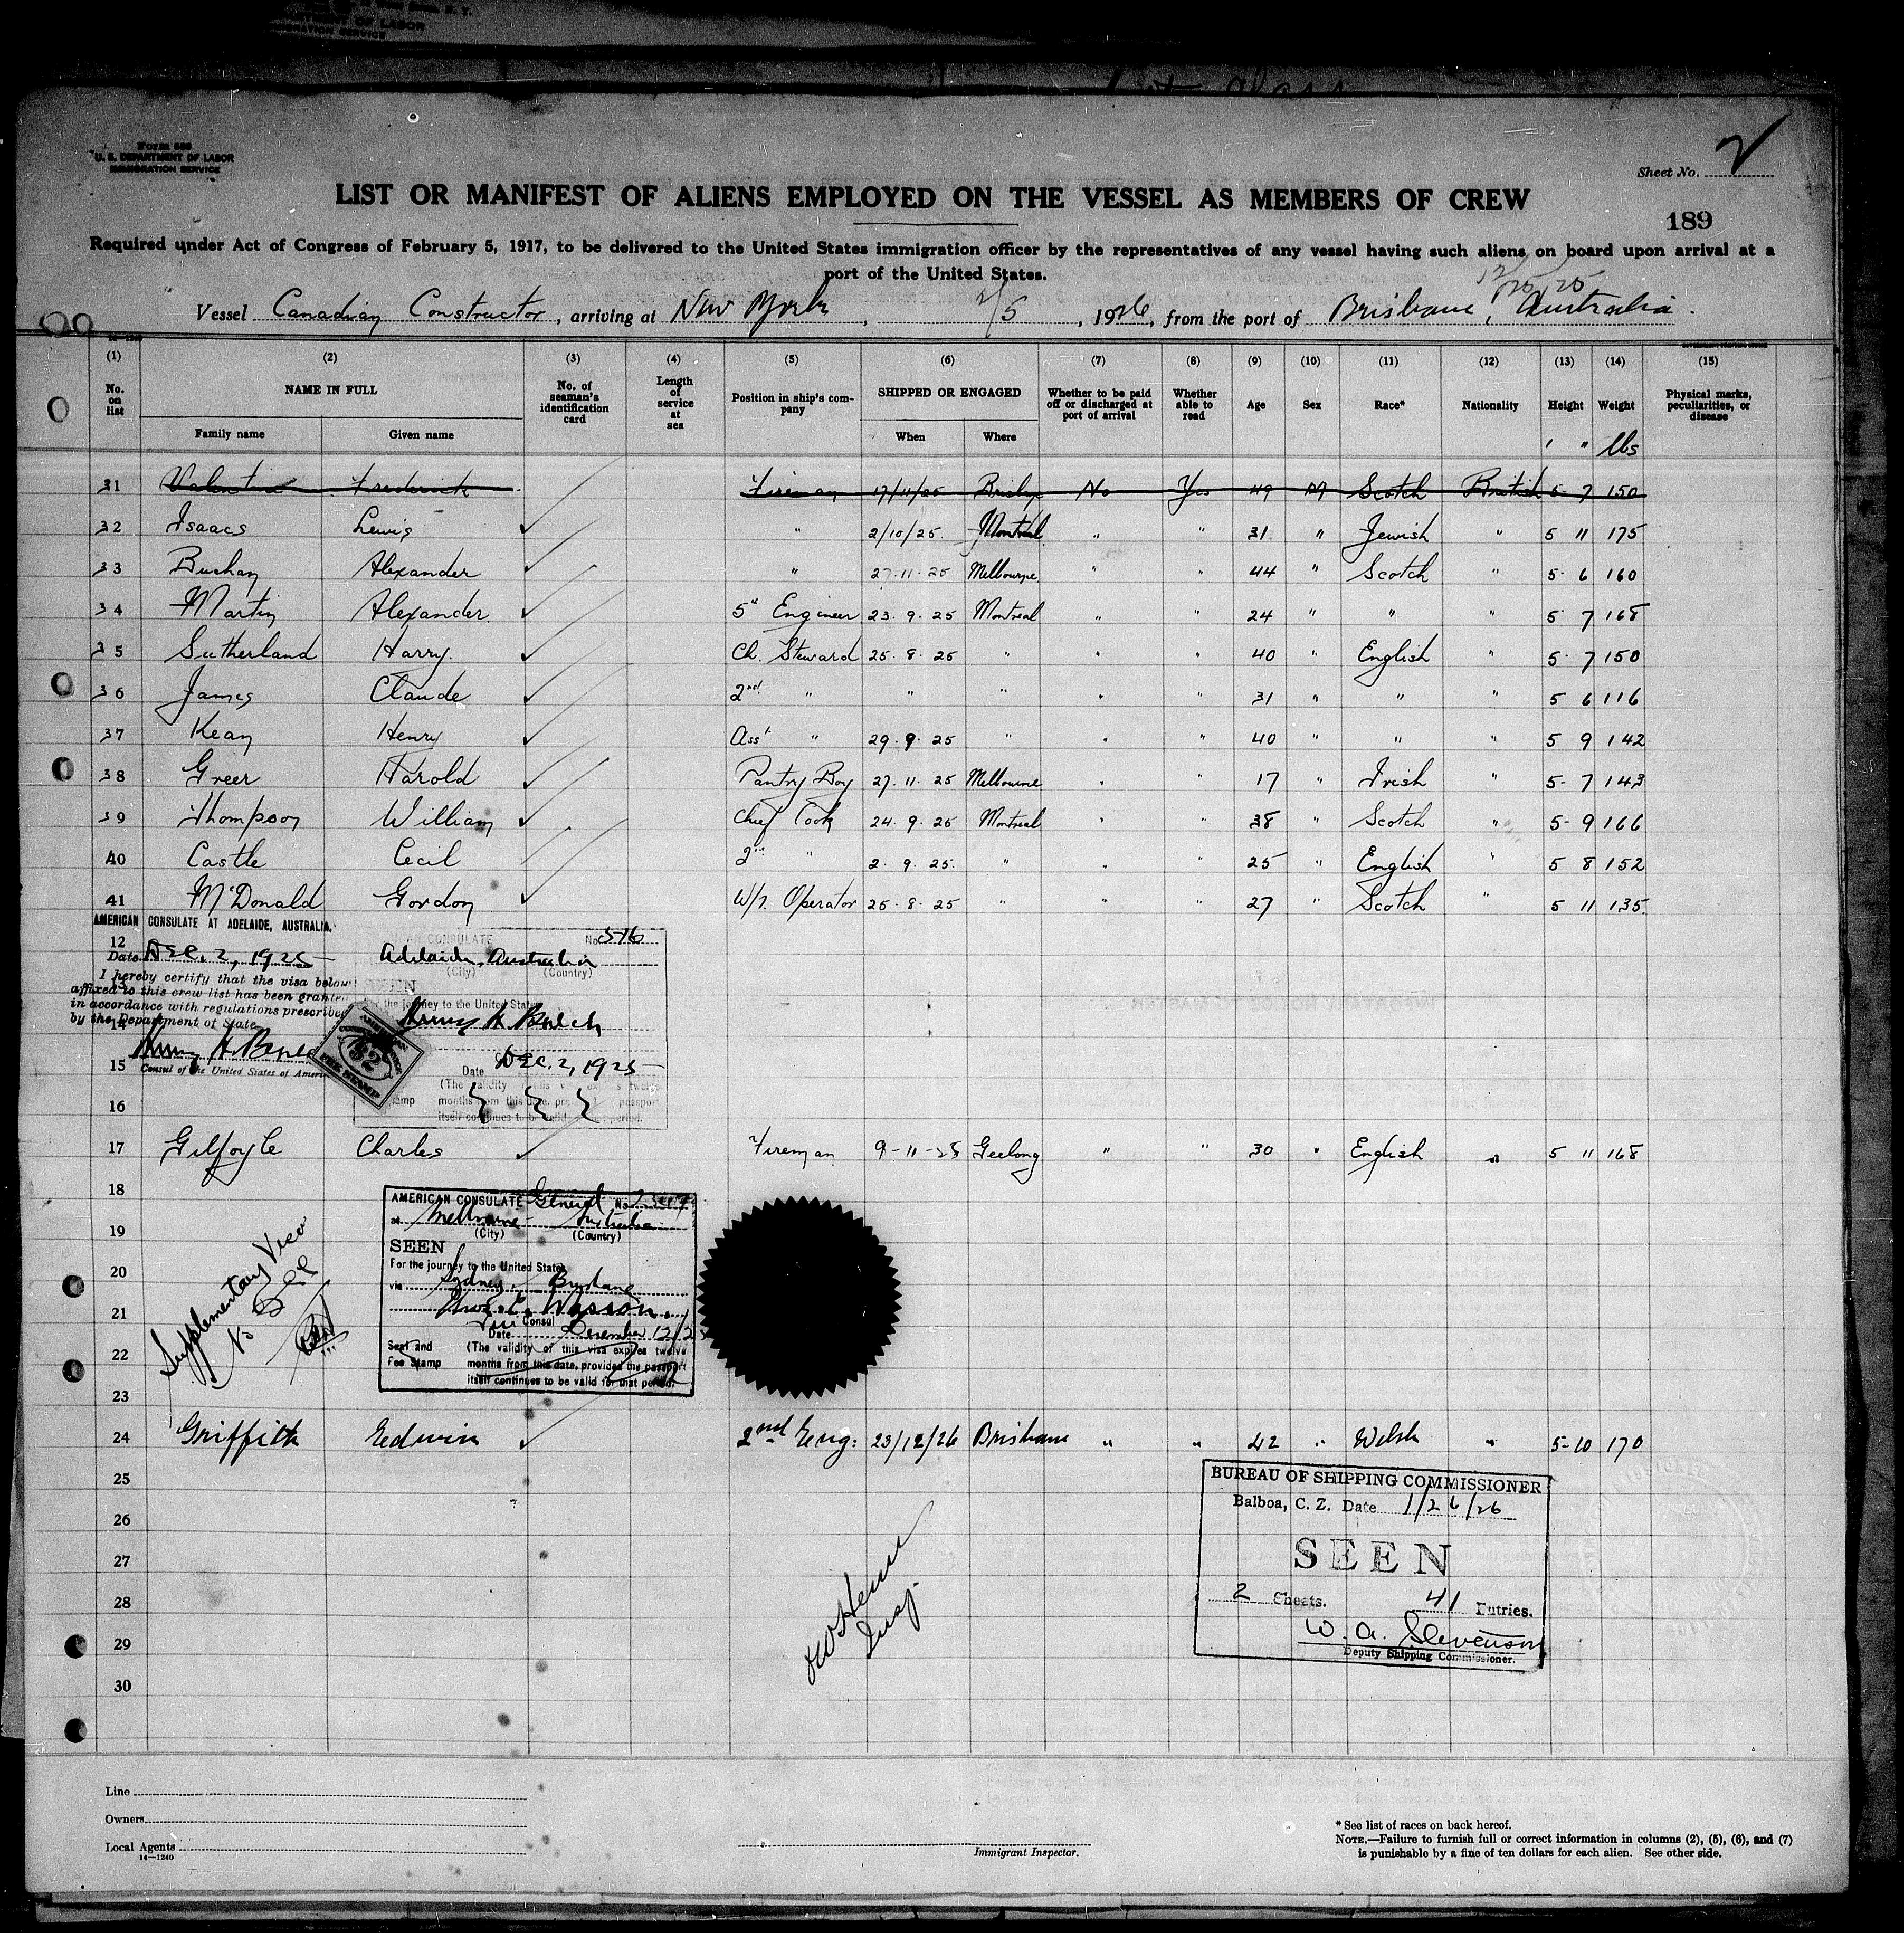 Form 689
U. S. DEPARTMENT OF LABOR
IMMIGRATION SERVICE
Sheet No. 2
LIST OR MANIFEST OF ALIENS EMPLOYED ON THE VESSEL AS MEMBERS OF CREW
189
Required under Act of Congress of February 5, 1917, to be delivered to the United States immigration officer by the representatives of any vessel having such aliens on board upon arrival at a
port of the United States.
Vessel Canadian Constructor, arriving at New York, 2/5, 1926, from the port of Brisbane, Australia.
(1) (2) (3) (4) (5) (6) (7) (8) (9) (10) (11) (12) (13) (14) (15)
No. on list NAME IN FULL Family name Given name No. of seaman's identification card Length of service at sea Position in ship's company SHIPPED OR ENGAGED When Where Whether to be paid off or discharged at port of arrival Whether able to read Age Sex Race* Nationality Height Weight Physical marks, peculiarities, or disease
' " lbs
31 Valentine Frederick Fireman 17/11/25 No Yes 49 M Scotch British 5 7 150
32 Isaacs Lewis " 2/10/25 Montreal " " 31 " Jewish " 5 11 175
33 Buchan Alexander " 27.11.25 Melbourne " " 44 " Scotch " 5 6 160
34 Martin Alexander 5th Engineer 23.9.25 Montreal " " 24 " " " 5 7 168
35 Sutherland Harry Ch. Steward 25.8.25 " " " 40 " English " 5 7 150
36 James Claude 2nd " " " " " 31 " " " 5 6 116
37 Kean Henry Asst " 29.9.25 " " " 40 " " " 5 9 142
38 Greer Harold Pantry Boy 27.11.25 Melbourne " " 17 " Irish " 5 7 143
39 Thompson William Chief Cook 24.9.25 Montreal " " 38 " Scotch " 5 9 166
40 Castle Cecil 2nd " 2.9.25. " " " 25 " English " 5 8 152
41 McDonald Gordon W/T. Operator 25.8.25 " " " 27 " Scotch " 5 11 135
AMERICAN CONSULATE AT ADELAIDE, AUSTRALIA.
12
Date Dec. 2, 1925
I hereby certify that the visa below
affixed to this crew list has been granted
in accordance with regulations prescribed
by the Department of State
14
15
Consul of the United States of America
CONSULATE No. 516
Adelaide, Australia
(City) (Country)
SEEN
For the journey to the United States
Date Dec. 2, 1925
(The validity of this visa expires twelve
months from this date, provided passport
itself continues to be valid period.
$2
FEE STAMP
16
17 Gilfoyle Charles Fireman 9-11-25 Geelong " " 30 " English " 5 11 168
18
AMERICAN CONSULATE General No.
at Melbourne Australia
(City) (Country)
SEEN
For the journey to the United States
via Sydney Brisbane
Wasson.
Vice Consul
Date December 12/25
Seal and
Fee Stamp
(The validity of this visa expires twelve
months from this date, provided the passport
itself continues to be valid for that period.
Supplementary Visa
No
19
20
21
22
23
24 Griffith Edwin 2nd Eng: 23/12/26 Brisbane " " 42 " Welsh " 5-10 170
25
26
27
28
29
30
BUREAU OF SHIPPING COMMISSIONER
Balboa, C. Z. Date 1/26/26
SEEN
2 Sheets. 41 Entries.
W. A. Stevenson
Deputy Shipping Commissioner.
Insp.
Line
Owners
Local Agents
14—1240
Immigrant Inspector.
* See list of races on back hereof.
NOTE.—Failure to furnish full or correct information in columns (2), (5), (6), and (7)
is punishable by a fine of ten dollars for each alien. See other side.